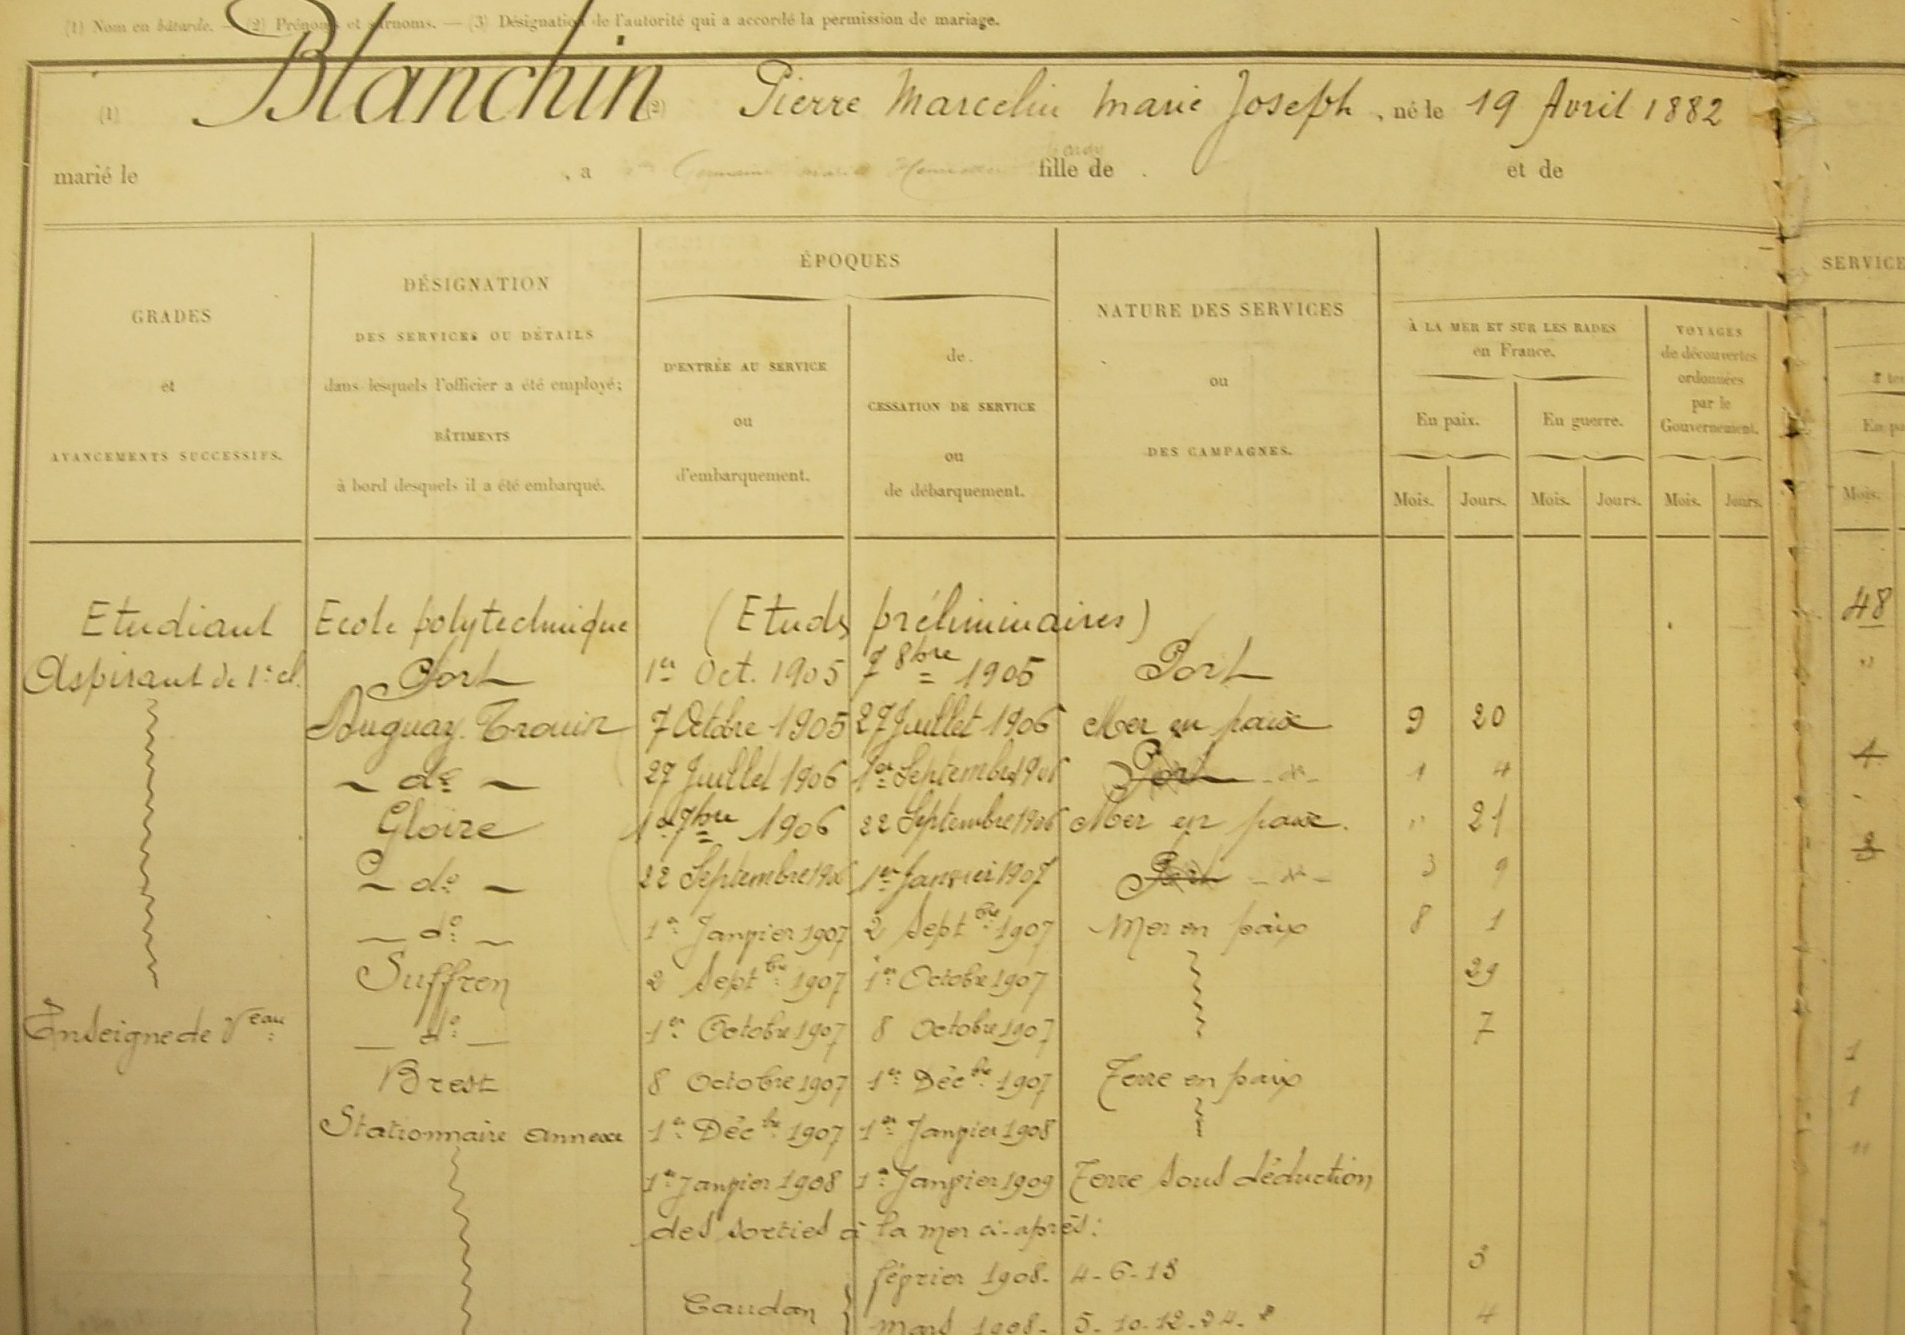 (1) Nom en bâtarde. — (2) Prénoms et surnoms. — (3) Désignation de l'autorité qui a accordé la permission de mariage.
(1) Blanchin (2) Pierre Marcelin Marie Joseph, né le 19 Avril 1882
marié le , a fille de et de
GRADES
et
AVANCEMENTS SUCCESSIFS.
DÉSIGNATION
DES SERVICES OU DÉTAILS
dans lesquels l'officier a été employé;
BÂTIMENTS
à bord desquels il a été embarqué.
ÉPOQUES
D'ENTRÉE AU SERVICE
ou
d'embarquement.
de
CESSATION DE SERVICE
ou
de débarquement.
NATURE DES SERVICES
ou
DES CAMPAGNES.
SERVICE
À LA MER ET SUR LES RADES
en France.
En paix. En guerre.
VOYAGES
de découvertes
ordonnées
par le
Gouvernement.
Mois. Jours. Mois. Jours. Mois. Jours. Mois.
Etudiant Ecole polytechnique (Etudes préliminaires) 48
Aspirant de 1e cl. Port 1er Oct. 1905 7 8bre 1905 Port "
Duguay-Trouin 7 Octobre 1905 27 Juillet 1906 Mer en paix 9 20
do 27 Juillet 1906 1er Septembre 1906 Port do 1 4
Gloire 1er 7bre 1906 22 Septembre 1906 Mer en paix. " 21
do 22 Septembre 1906 1er Janvier 1907 Port do 3 9
do 1er Janvier 1907 2 Septbre 1907 Mer en paix 8 1
Suffren 2 Septbre 1907 1er Octobre 1907 29
Enseigne de Veau do 1er Octobre 1907 8 Octobre 1907 7
Brest 8 Octobre 1907 1er Décbre 1907 Terre en paix 1
Stationnaire annexe 1er Décbre 1907 1er Janvier 1908 1
1er Janvier 1908 1er Janvier 1909 Terre sous déduction "
des sorties à la mer ci-après:
février 1908. 4-6-18 3
Caudan mars 1908. 5-10-12-24- 4